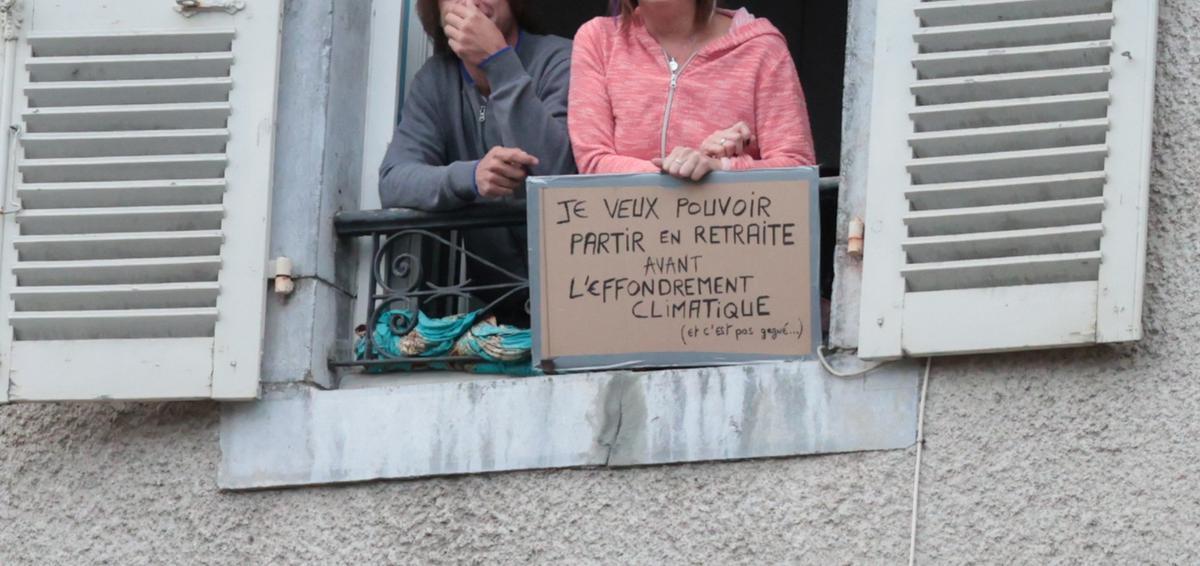 JE VEUX POUVOIR
PARTIR EN RETRAITE
AVANT
L'EFFONDREMENT
CLIMATIQUE
(et c'est pas gagné...)